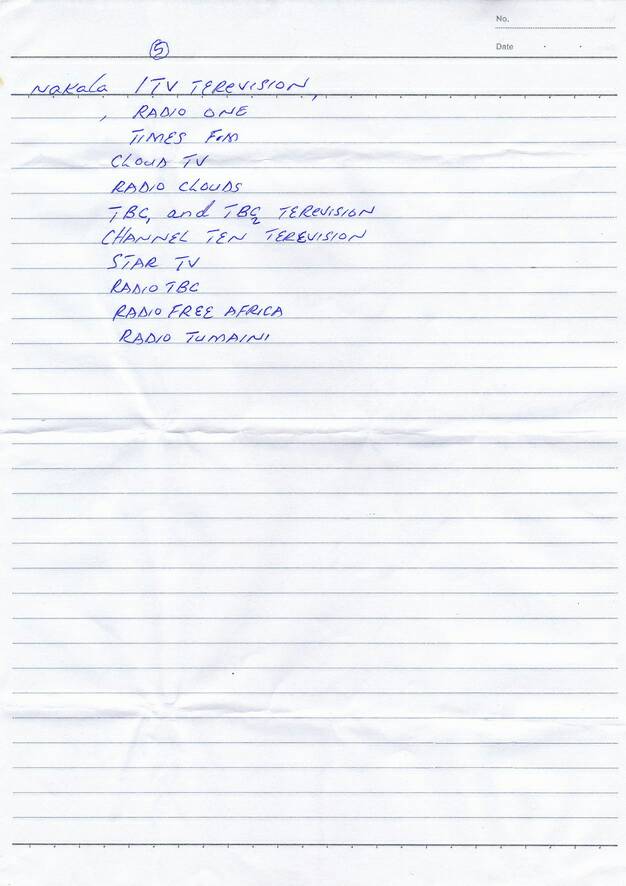 No.
Date
5
Nakala ITV TEREVISION,
, RADIO ONE
TIMES F.M
CLOUD TV
RADIO CLOUDS
TBC, and TBC2 TEREVISION
CHANNEL TEN TEREVISION
STAR TV
RADIO TBC
RADIO FREE AFRICA
RADIO TUMAINI